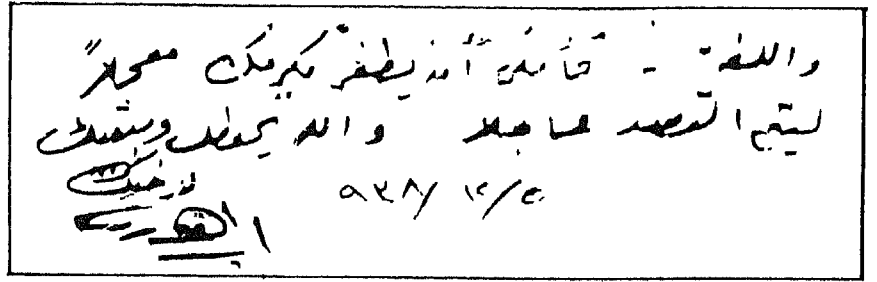 واللغة . فأملي أن يظفر بكرمك معجلاً
ليتم القصد عاجلا والله يحفظك ويبقيك
لأخيك
٩٣٨/١٢/٢٠